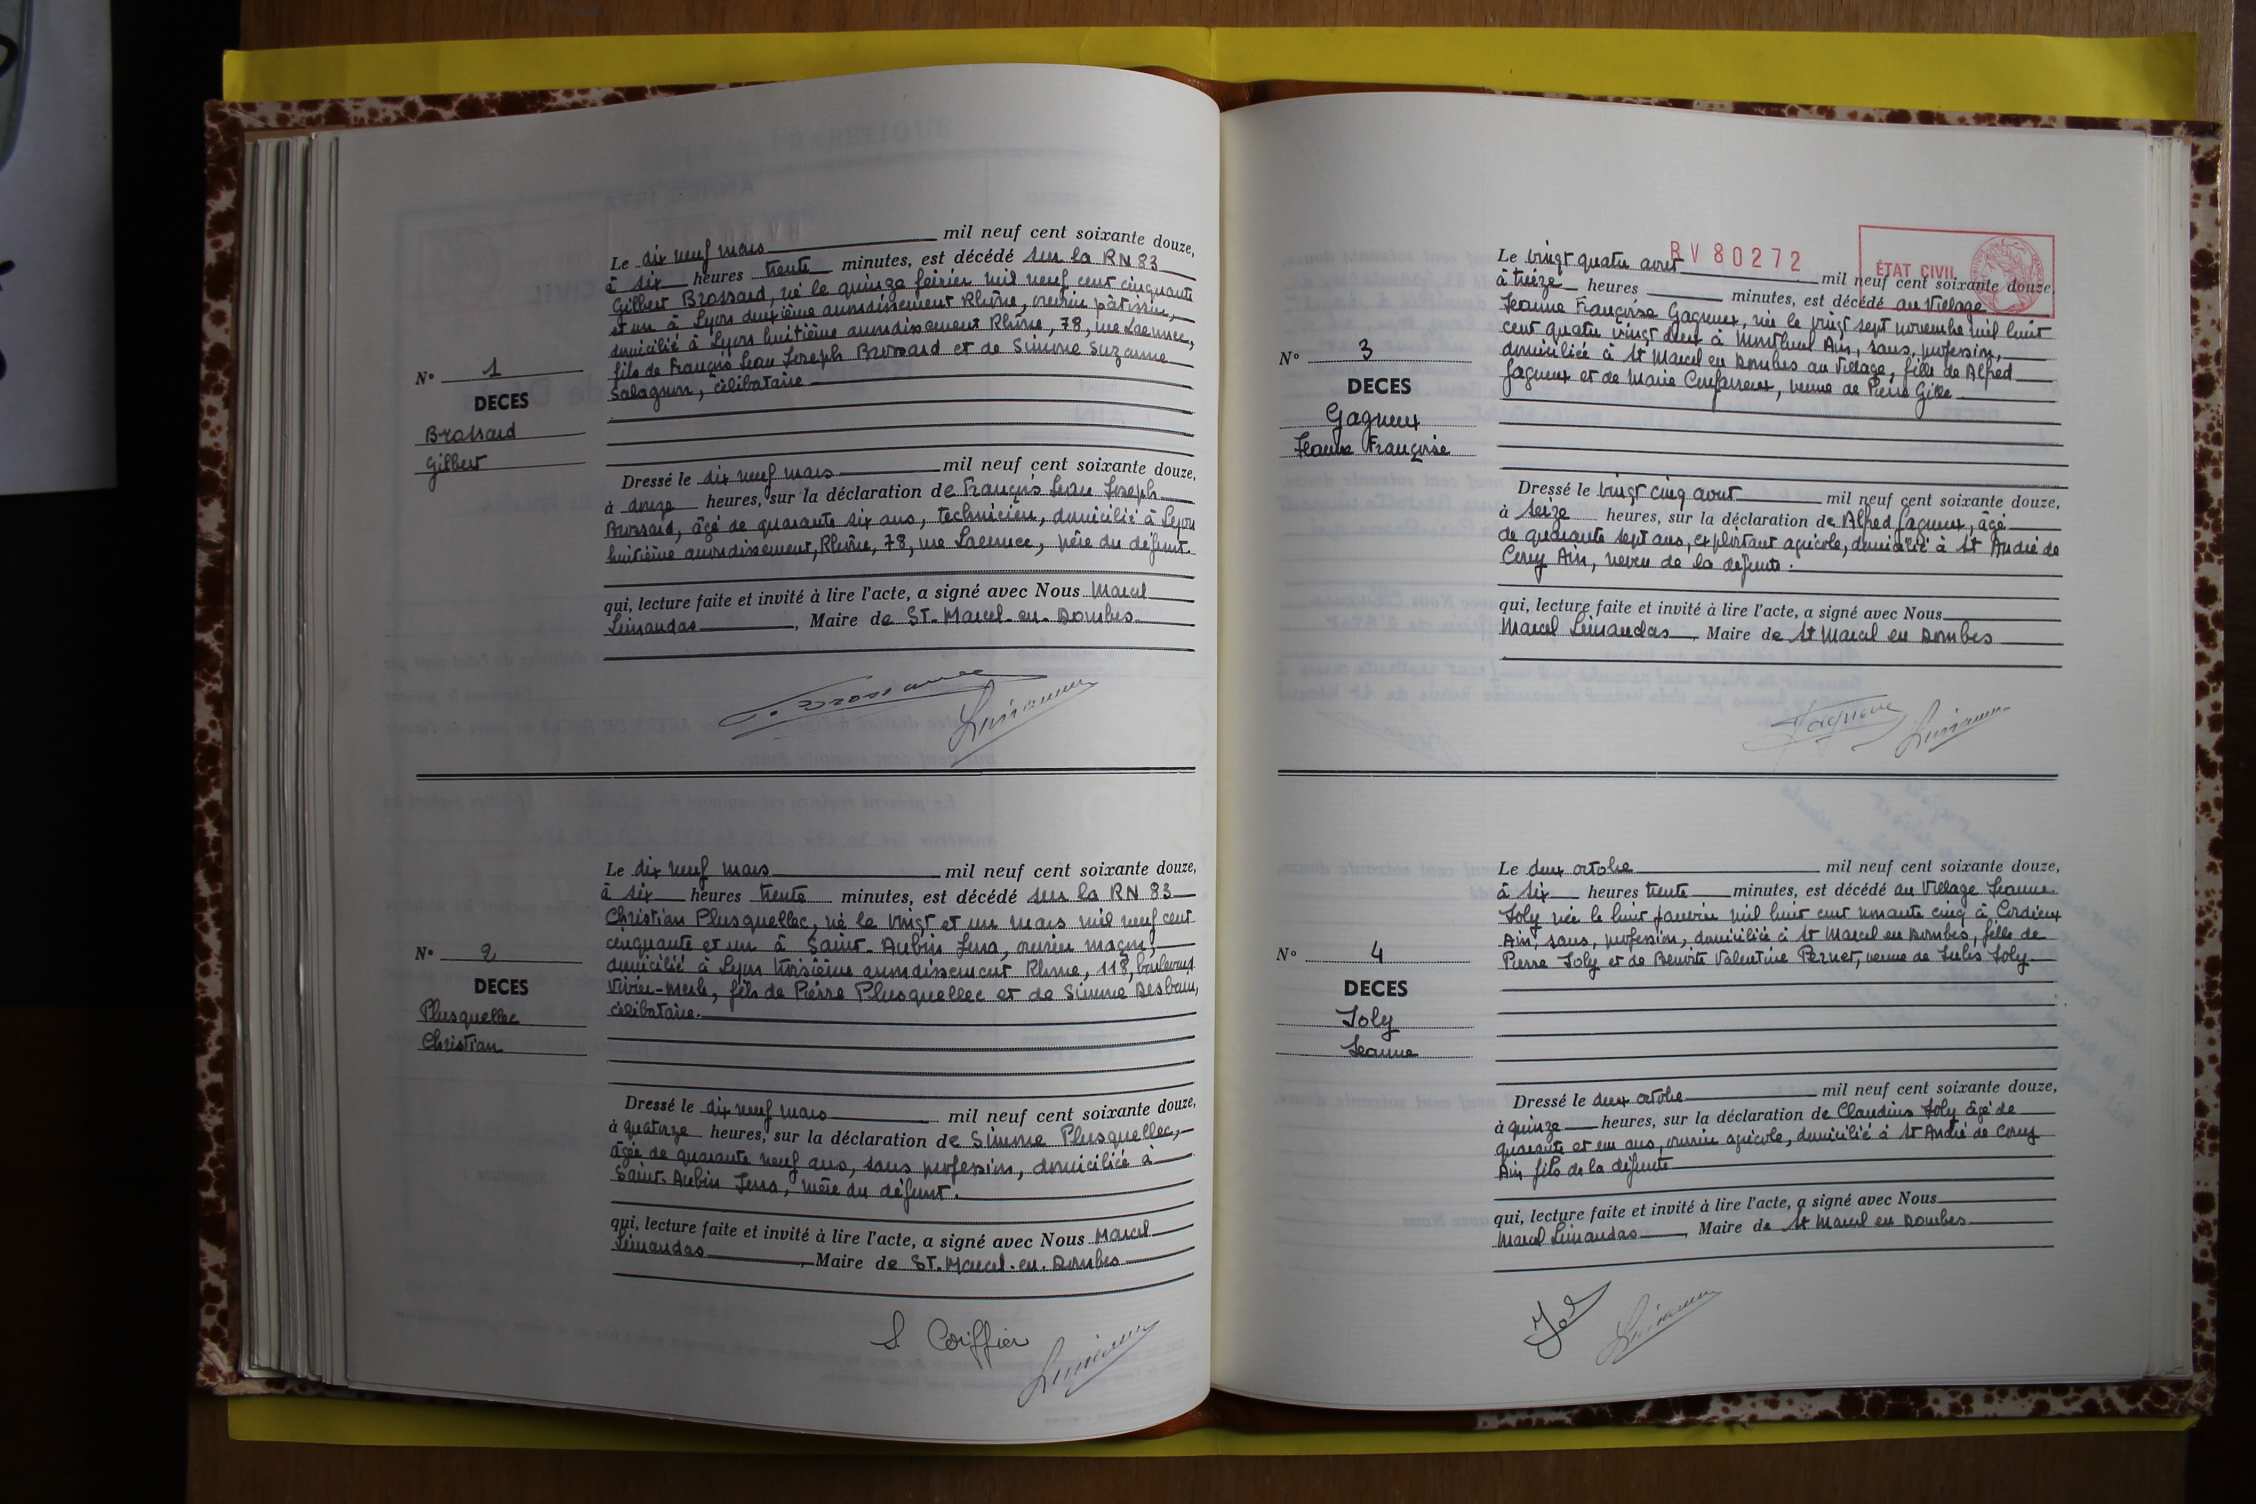 Le dix neuf mars mil neuf cent soixante douze,
à six heures trente minutes, est décédé sur la RN 83
Gilbert Brossard, né le quinze février mil neuf cent cinquante
et un à Lyon deuxième arrondissement Rhône, ouvrier pâtissier,
domicilié à Lyon huitième arrondissement Rhône, 78, rue Laennec,
fils de François Jean Joseph Brossard et de Simone Suzanne
Salagnon, célibataire
N° 1
DECES
Brossard
Gilbert
Dressé le dix neuf mars mil neuf cent soixante douze,
à douze heures, sur la déclaration de François Jean Joseph
Brossard, âgé de quarante six ans, technicien, domicilié à Lyon
huitième arrondissement, Rhône, 78, rue Laennec, père du défunt.
qui, lecture faite et invité à lire l'acte, a signé avec Nous Marcel
Limandas, Maire de St-Marcel-en-Dombes
Le dix neuf mars mil neuf cent soixante douze,
à six heures trente minutes, est décédé sur la RN 83
Christian Plusquellec, né le vingt et un mars mil neuf cent
cinquante et un à Saint-Aubin Jura, ouvrier maçon,
domicilié à Lyon troisième arrondissement Rhône, 118, boulevard
Vivier-Merle, fils de Pierre Plusquellec et de Simone
célibataire.
N° 2
DECES
Plusquellec
Christian
Dressé le dix neuf mars mil neuf cent soixante douze,
à quatorze heures, sur la déclaration de Simone Plusquellec,
âgée de quarante neuf ans, sans profession, domiciliée à
Saint-Aubin Jura, mère du défunt.
qui, lecture faite et invité à lire l'acte, a signé avec Nous Marcel
Limandas, Maire de St-Marcel-en-Dombes
S Coiffier
BV 80272
ÉTAT CIVIL
Le vingt quatre avril mil neuf cent soixante douze,
à treize heures minutes, est décédé au Village
Jeanne Françoise Gagneux, née le vingt sept novembre mil huit
cent quatre vingt deux à Montluel Ain, sans profession,
domiciliée à St Marcel en Dombes au Village, fille de Alfred
Gagneux et de Marie, veuve de Pierre Gille
N° 3
DECES
Gagneux
Jeanne Françoise
Dressé le vingt cinq avril mil neuf cent soixante douze,
à seize heures, sur la déclaration de Alfred Gagneux, âgé
de quarante sept ans, exploitant agricole, domicilié à St André de
Corcy Ain, neveu de la défunte.
qui, lecture faite et invité à lire l'acte, a signé avec Nous
Marcel Limandas, Maire de St Marcel en Dombes
Le deux octobre mil neuf cent soixante douze,
à six heures trente minutes, est décédé au Village Jeanne
Joly née le huit janvier mil huit cent nonante cinq à Cordieux
Ain, sans profession, domiciliée à St Marcel en Dombes, fille de
Pierre Joly et de Benoite Valentine Pernet, veuve de Jules Joly
N° 4
DECES
Joly
Jeanne
Dressé le deux octobre mil neuf cent soixante douze,
à quinze heures, sur la déclaration de Claudius Joly âgé de
quarante et un ans, ouvrier agricole, domicilié à St André de Corcy
Ain fils de la défunte
qui, lecture faite et invité à lire l'acte, a signé avec Nous
Marcel Limandas, Maire de St Marcel en Dombes